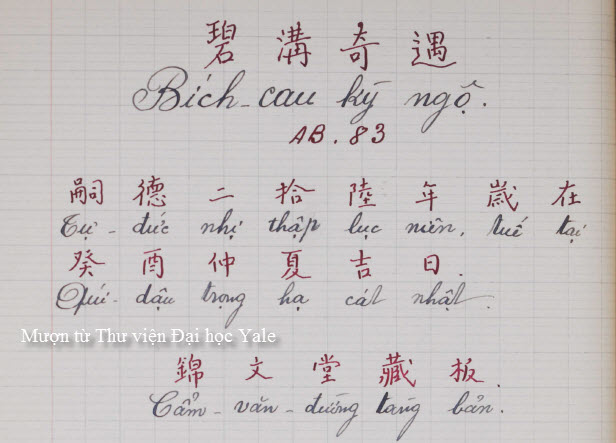 碧溝奇遇
Bích-câu kỳ ngộ.
AB.83
嗣德二拾陸年歲在
Tự-đức nhị thập lục niên, tuế tại
癸酉仲夏吉日.
Quí-dậu trọng hạ cát nhật.
Mượn từ Thư viện Đại học Yale
錦文堂藏板.
Cẩm-văn-đường tàng bản.